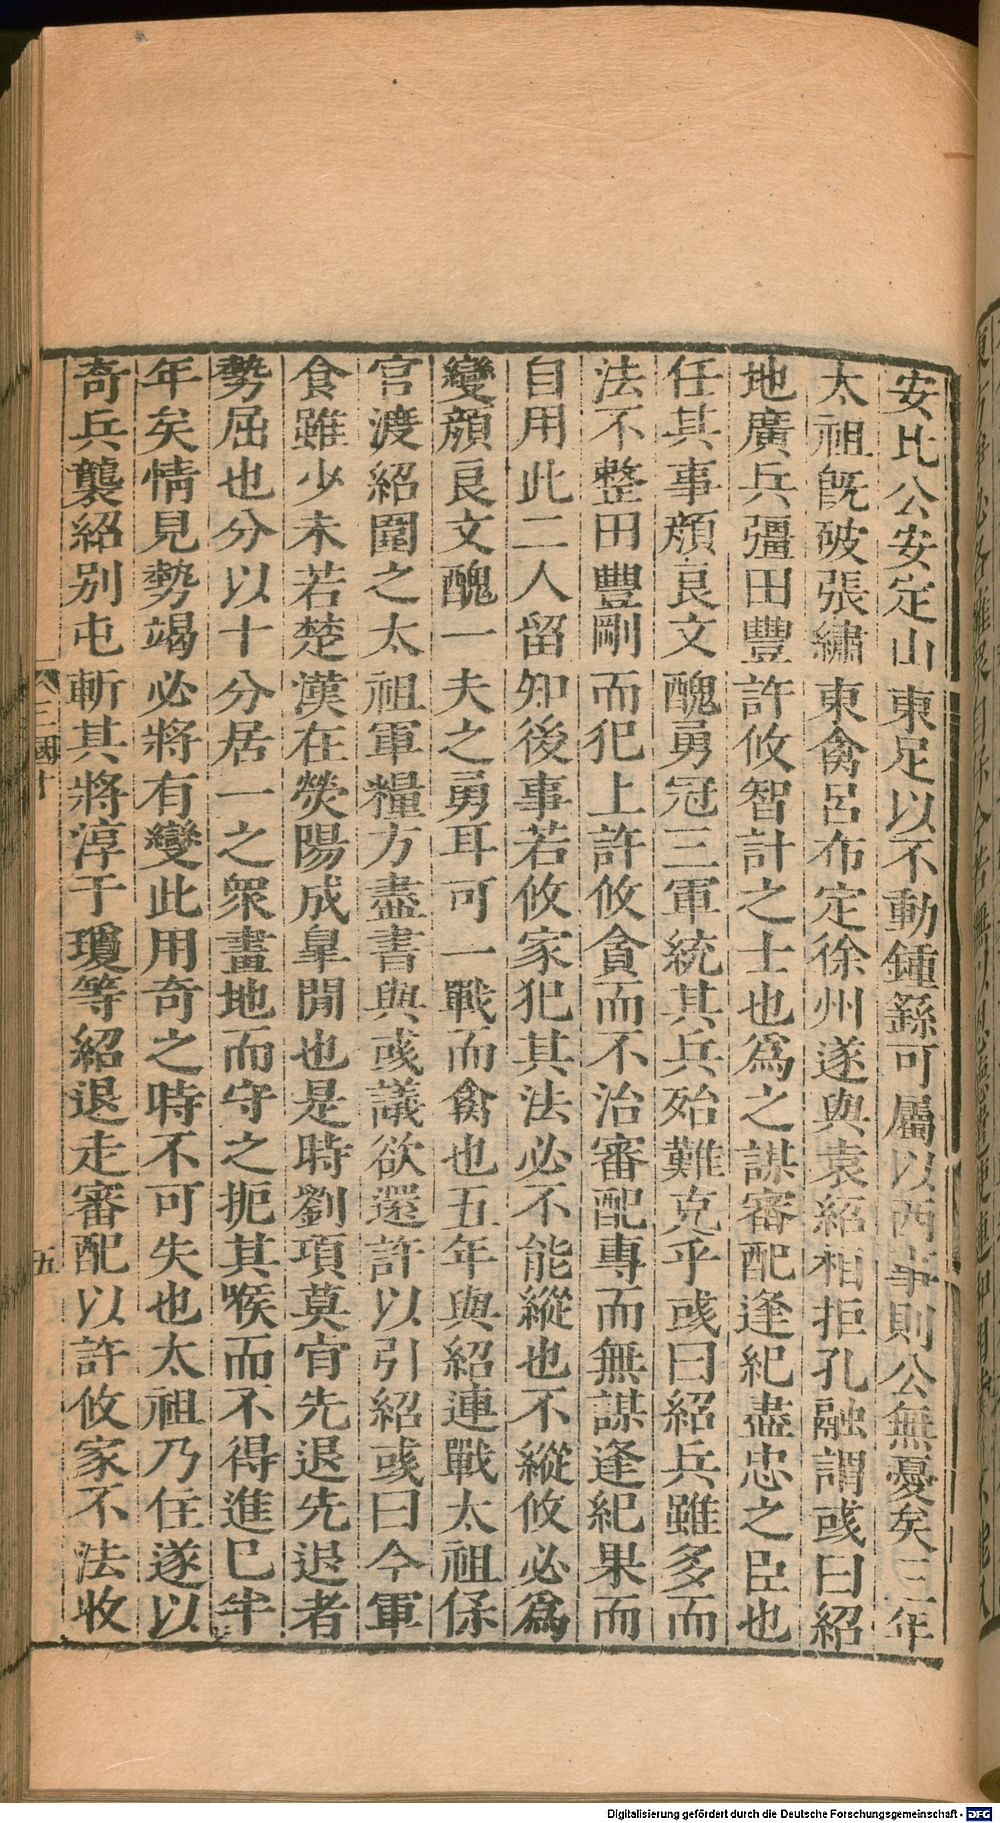 安比公安定山東足以不動鍾繇可屬以西事則公無憂矣三年
太祖既破張繡東禽呂布定徐州遂與袁紹相拒孔融謂彧曰紹
地廣兵彊田豐許攸智計之士也爲之謀審配逢紀盡忠之臣也
任其事顏良文醜勇冠三軍統其兵殆難克乎彧曰紹兵雖多而
法不整田豐剛而犯上許攸貪而不治審配專而無謀逢紀果而
自用此二人留知後事若攸家犯其法必不能縱也不縱攸必爲
變顏良文醜一夫之勇耳可一戰而禽也五年與紹連戰太祖保
官渡紹圍之太祖軍糧方盡書與彧議欲還許以引紹彧曰今軍
食雖少未若楚漢在滎陽成皐閒也是時劉項莫肯先退先退者
勢屈也分以十分居一之衆畫地而守之扼其喉而不得進巳半
年矣情見勢竭必將有變此用奇之時不可失也太祖乃住遂以
奇兵襲紹别屯斬其將淳于瓊等紹退走審配以許攸家不法收
三國十
五
Digitalisierung gefördert durch die Deutsche Forschungsgemeinschaft - DFG